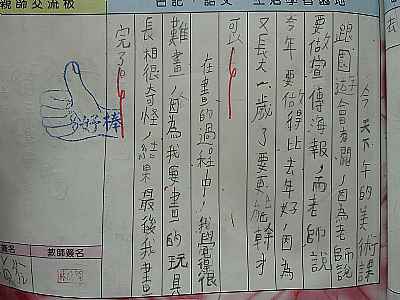 親師交流板
日記、語文、生活學習園地
今天下午的美術課
跟園遊會有關，因為老師說
要做宣傳海報，而老師說
今年要做得比去年好，因為
又長大一歲了要更能幹才
可以。
在畫的過程中，我覺得很
難畫，因為我要畫的玩具
長相很奇怪，結果最後我畫
完了。
好棒
教師簽名
簽名